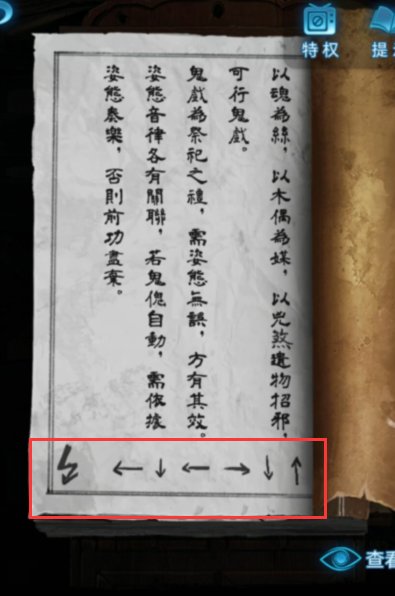 特权
提
以魂為絲，以木偶為媒，以兇煞遺物招邪，
可行鬼戲。
鬼戲為祭祀之禮，需姿態無誤，方有其效。
姿態音律各有關聯，若鬼傀自動，需依據
姿態奏樂，否則前功盡棄。
查看